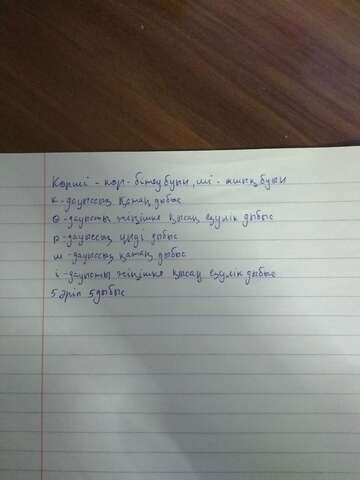 Көрші - көр - бітеу буын, ші - ашық буын
к - дауыссыз қатаң дыбыс
ө - дауысты жіңішке қысаң езулік дыбыс
р - дауыссыз үнді дыбыс
ш - дауыссыз қатаң дыбыс
і - дауысты жіңішке қысаң езулік дыбыс
5 әріп 5 дыбыс